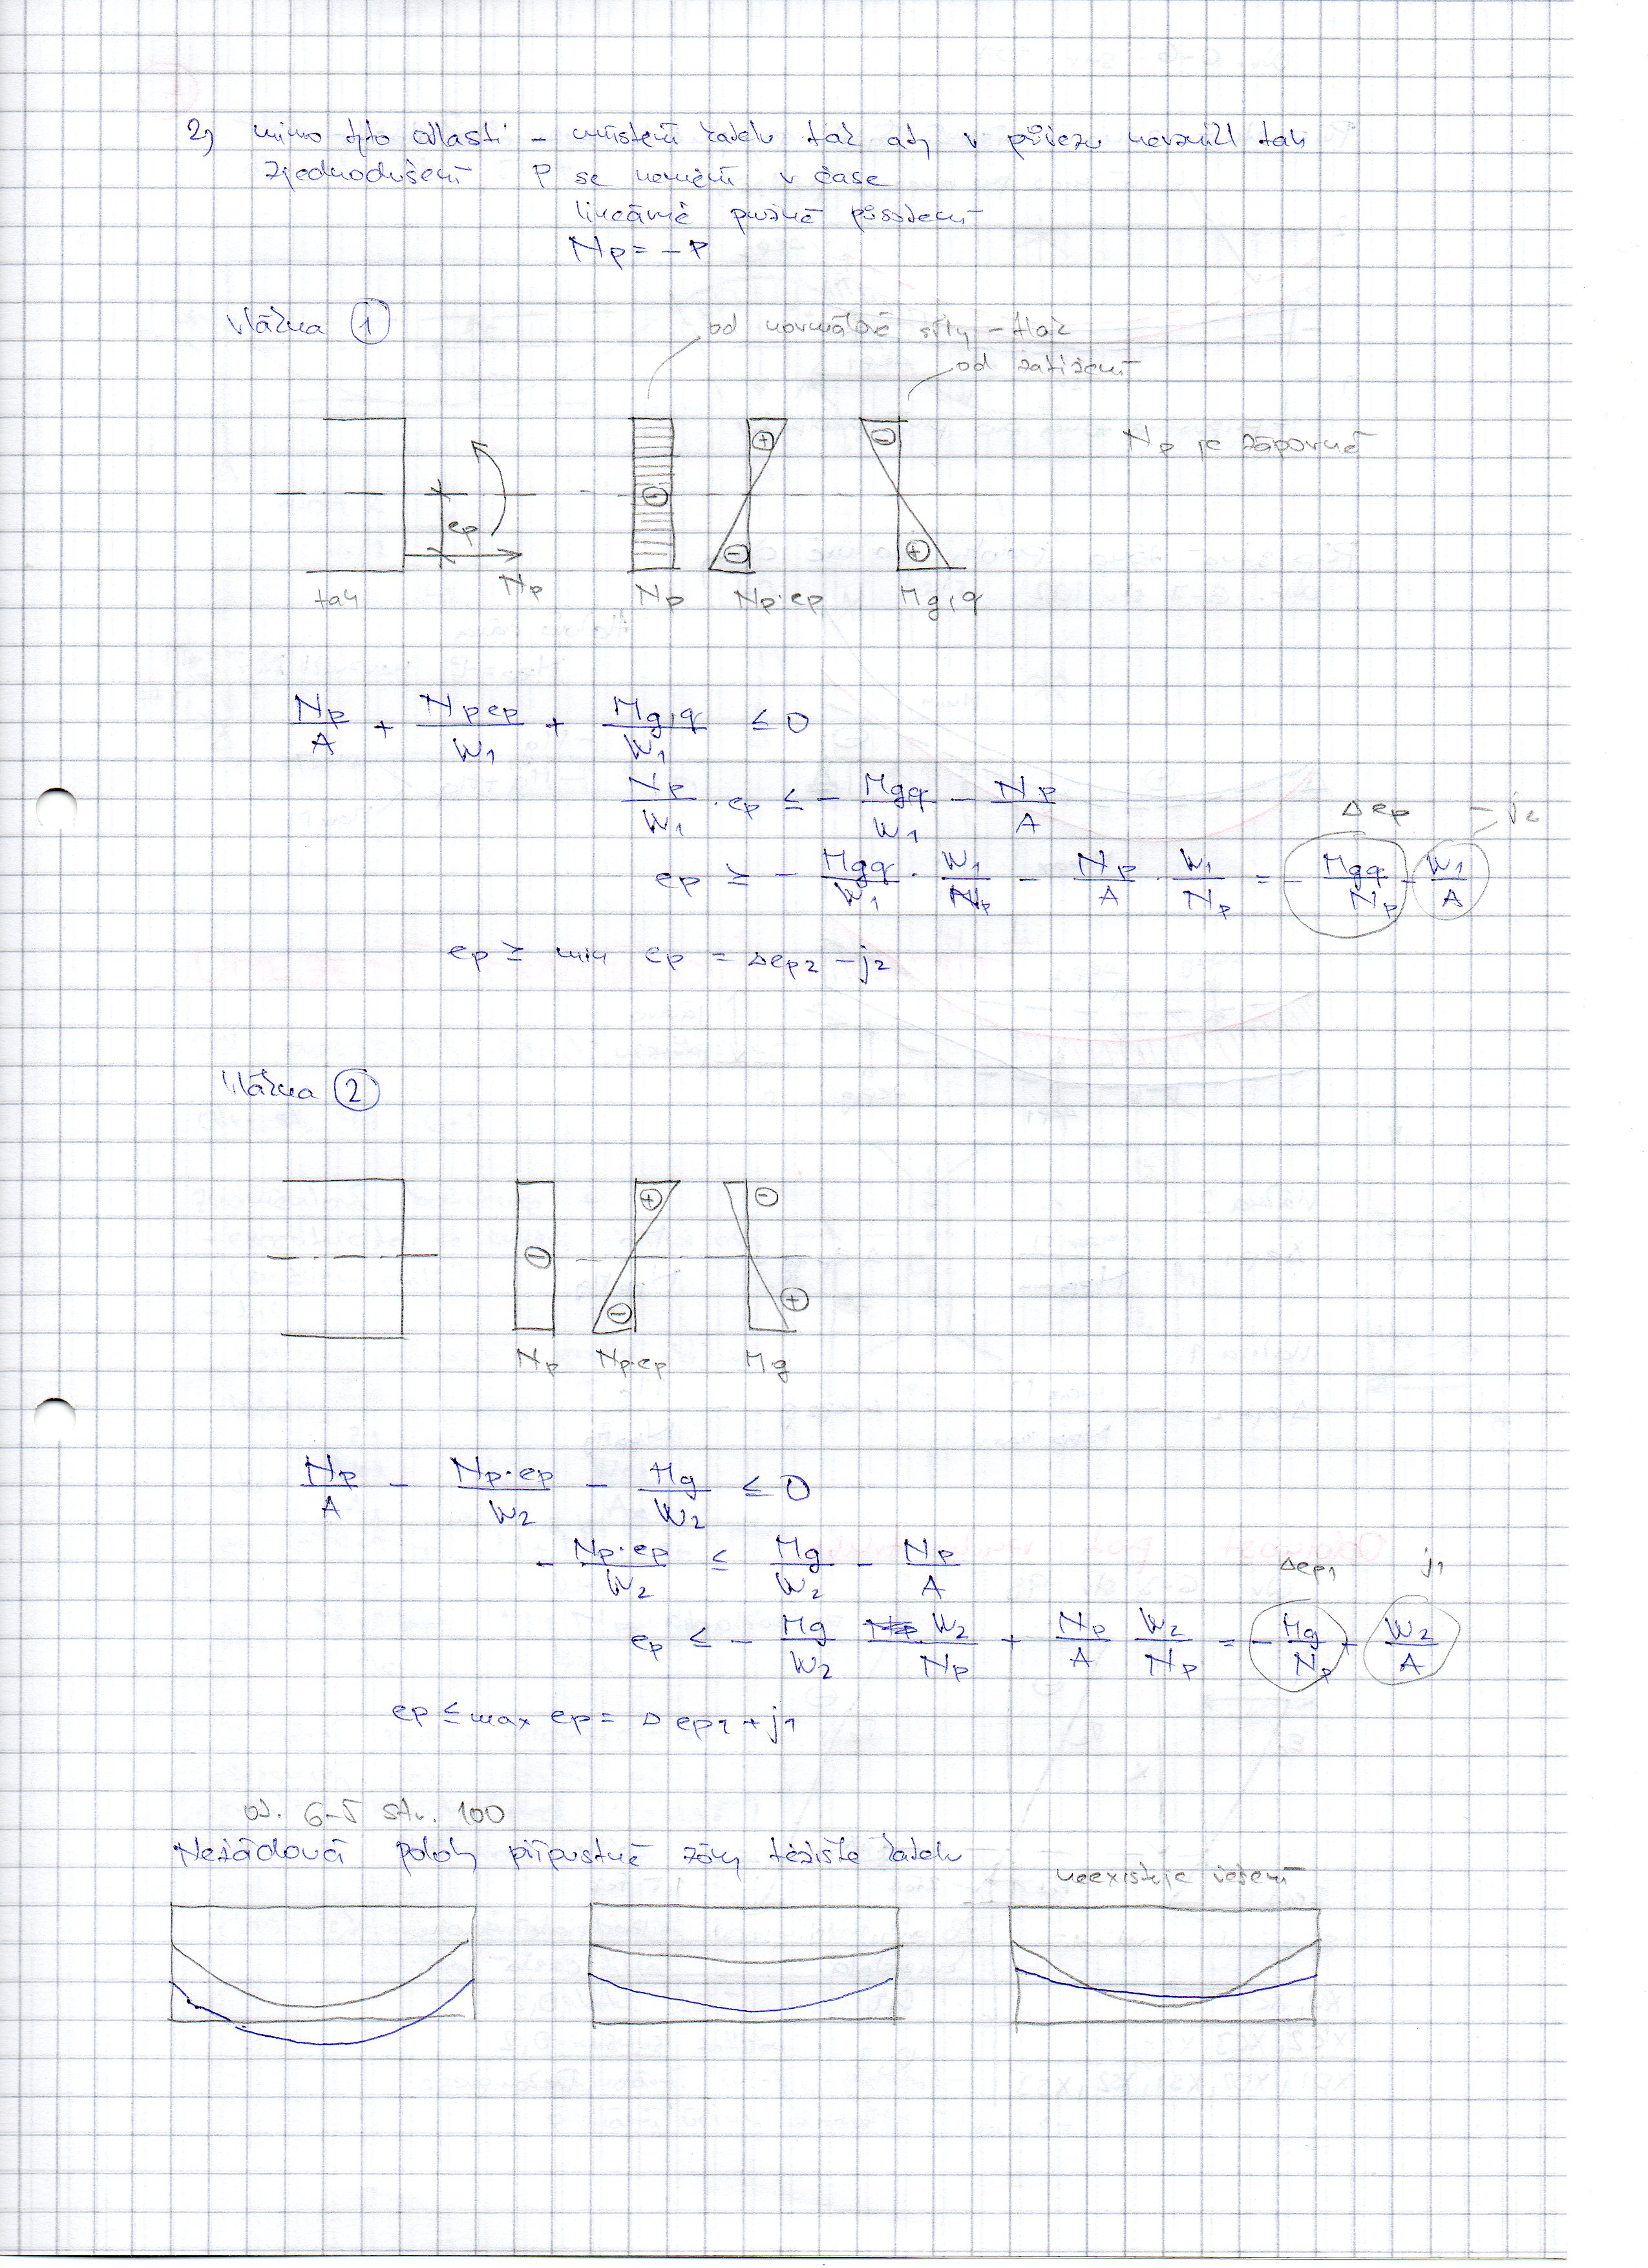 2) mimo tyto oblasti – umístění kabelu tak aby v průřezu nevznikl tah
zjednodušení P se nemění v čase
lineárně pružné působení
Np = – P
Vlákna ①
od normálové síly – tlak
od zatížení
Np je záporné
⊕ ⊖
ep ⊖
⊖ ⊕
tah Np Np Np·ep Mg,q
Np/A + Np ep/W1 + Mg,q/W1 ≤ 0
Np/W1 · ep ≤ – Mgq/W1 – Np/A
Δep – j2
ep ≥ – Mgq/W1 · W1/Np – Np/A · W1/Np = – Mgq/Np – W1/A
ep ≥ min ep = Δep2 – j2
Vlákna ②
⊕ ⊖
⊖
⊖ ⊕
Np Np·ep Mg
Np/A – Np·ep/W2 – Mg/W2 ≤ 0
– Np·ep/W2 ≤ Mg/W2 – Np/A
Δep1 j1
ep ≤ – Mg/W2 W2/Np + Np/A W2/Np = – Mg/Np + W2/A
ep ≤ max ep = Δep1 + j1
ob. 6-5 str. 100
Nežádoucí polohy přípustné zóny těžiště kabelu
neexistuje řešení